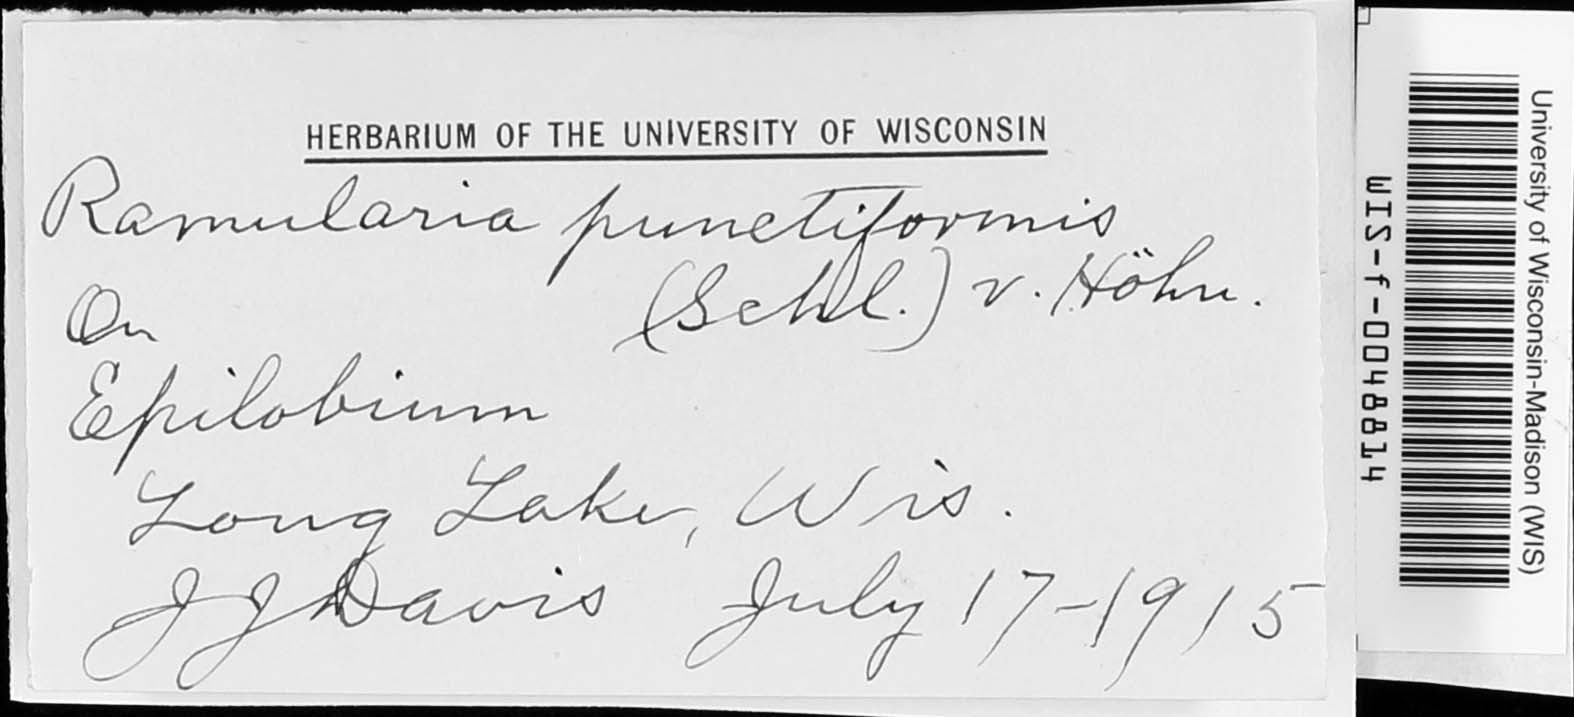 HERBARIUM OF THE UNIVERSITY OF WISCONSIN
Ramularia punctiformis
(Schl.) v. Höhn.
On
Epilobium
Long Lake, Wis.
JJ Davis July 17-1915
University of Wisconsin-Madison (WIS)
WIS-f-0048814